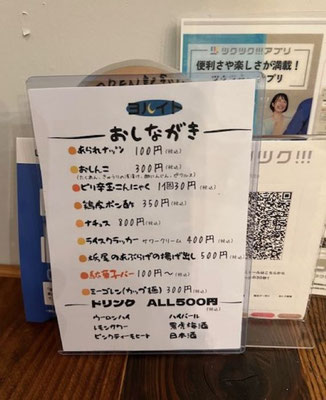 OPEN
ツックツック!!!アプリ
便利さや楽しさが満載!
ヨルイト
おしながき
あられナッツ 100円(税込)
おしんこ 300円(税込)
ピリ辛玉こんにゃく 1個30円(税込)
鶏皮ポン酢 350円(税込)
ナチョス 800円(税込)
ライスクラッカー サワークリーム 400円(税込)
のあぶらげの揚げ出し 500円(税込)
駄菓子バー 100円〜(税込)
ミーゴレン(カップ麺) 300円(税込)
ドリンク ALL500円(税込)
ウーロンハイ ハイボール
レモンサワー 黒糖梅酒
ピンクティーモヒート 日本酒